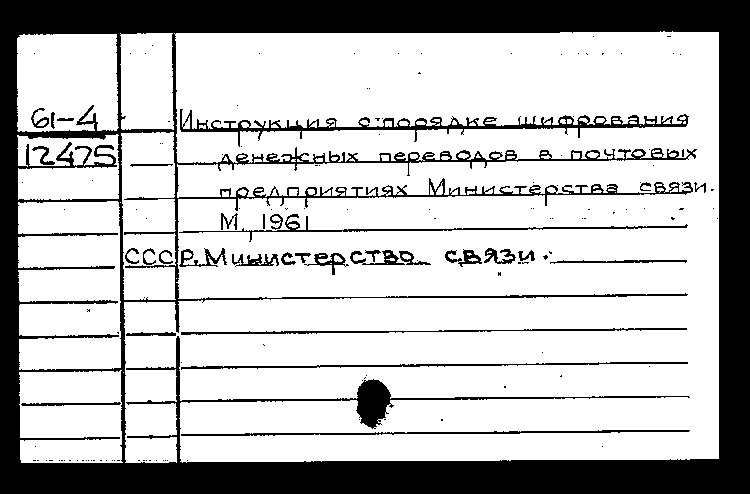 61-4
12475
Инструкция о порядке шифрования
денежных переводов в почтовых
предприятиях Министерства связи.
М., 1961
СССР. Министерство связи.